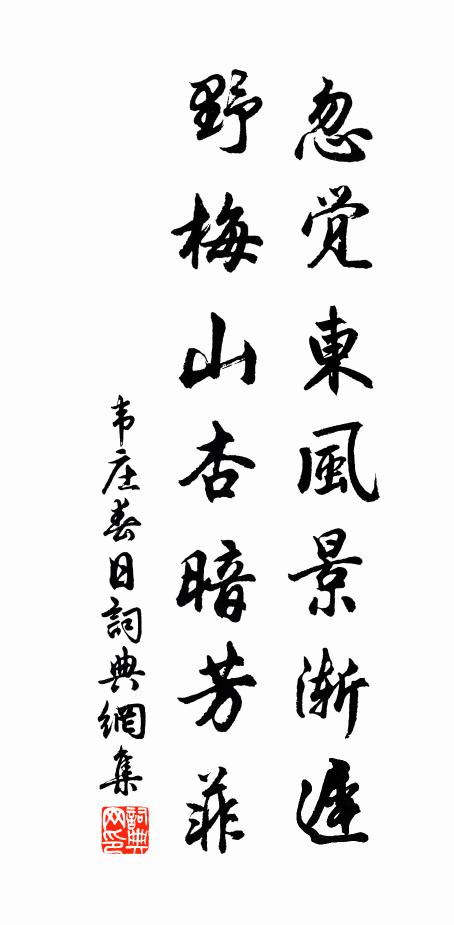 忽觉東風景渐遲
野梅山杏暗芳菲
韦庄春日詞典網集
詞典网印